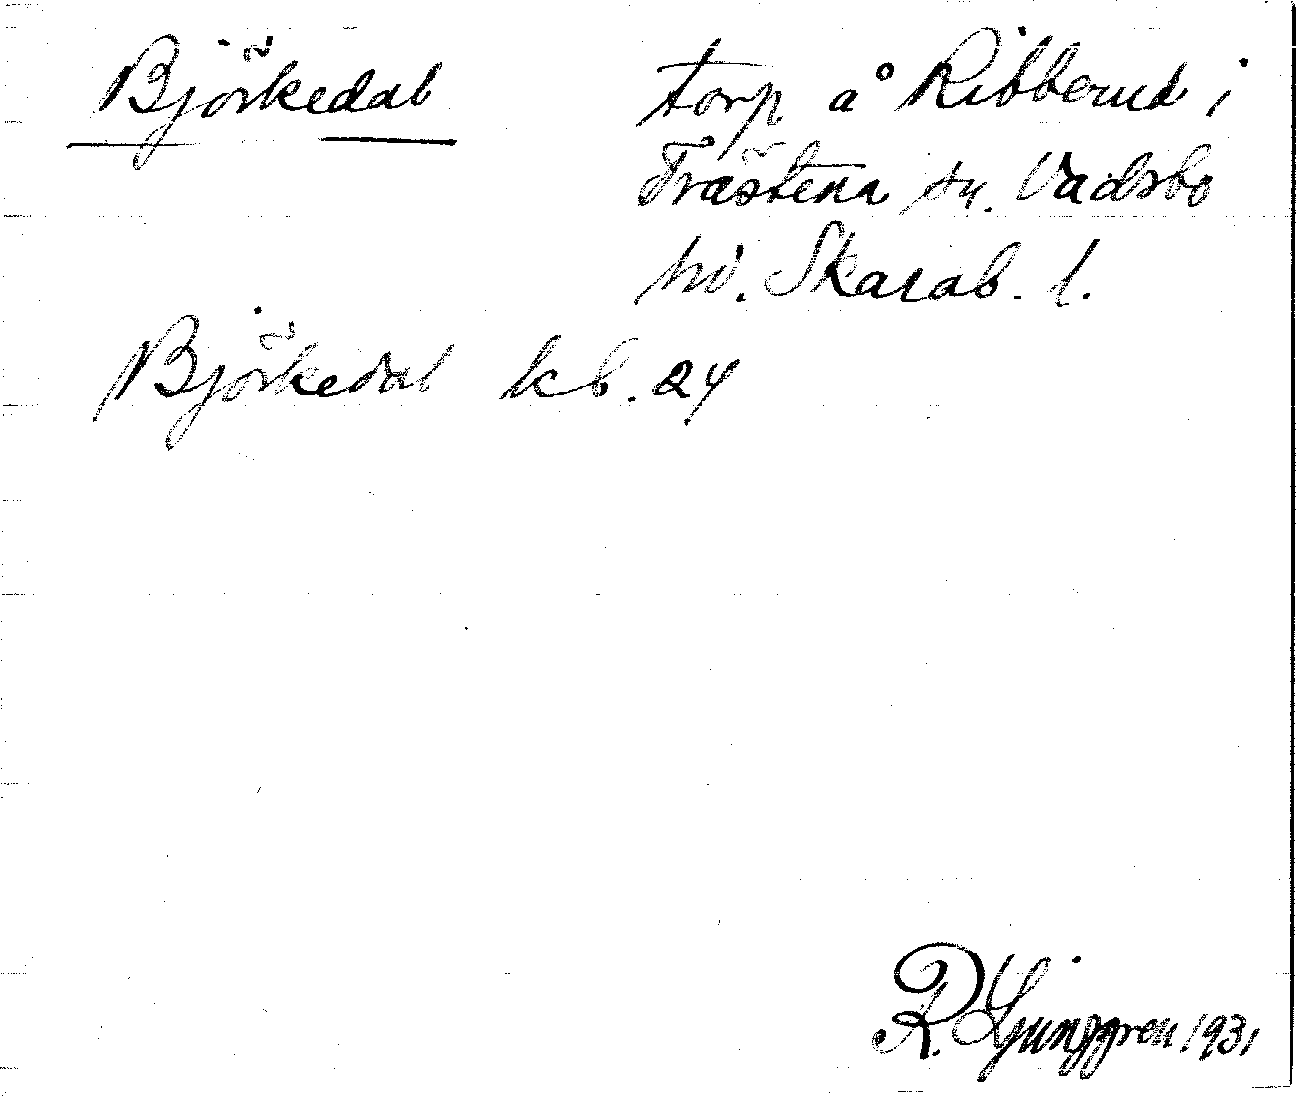 Björkedal
torp å Ribberud i
Trästena sn. Vadsbo
hd. Skarab. l.
Björkedal kb. 24
R. Ljunggren 1931